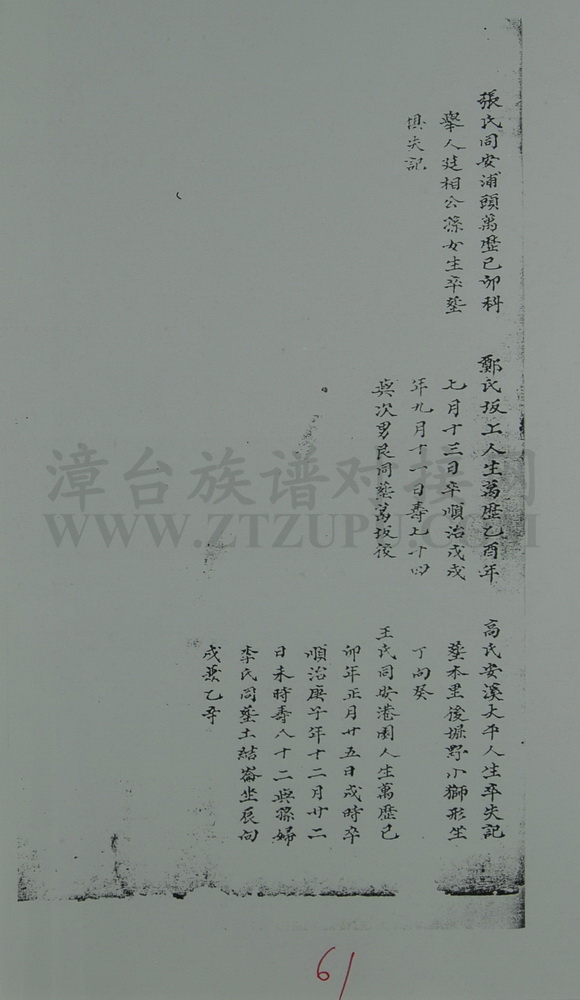 張氏同安浦頭萬歷己卯科
舉人廷相公孫女生卒塟
俱失記
鄭氏坂上人生萬歷乙酉年
七月十三日卒順治戊戌
年九月十一日壽七十四
與次男艮同塟萬坂後
高氏安溪大平人生卒失記
塟本里後堀野小獅形坐
丁向癸
王氏同安港園人生萬歷己
卯年正月廿五日戌時卒
順治庚子年十二月廿二
日未時壽八十二與孫婦
李氏同塟土結崙坐辰向
戌兼乙辛
漳台族谱对接网
WWW.ZTZUPU.COM
61